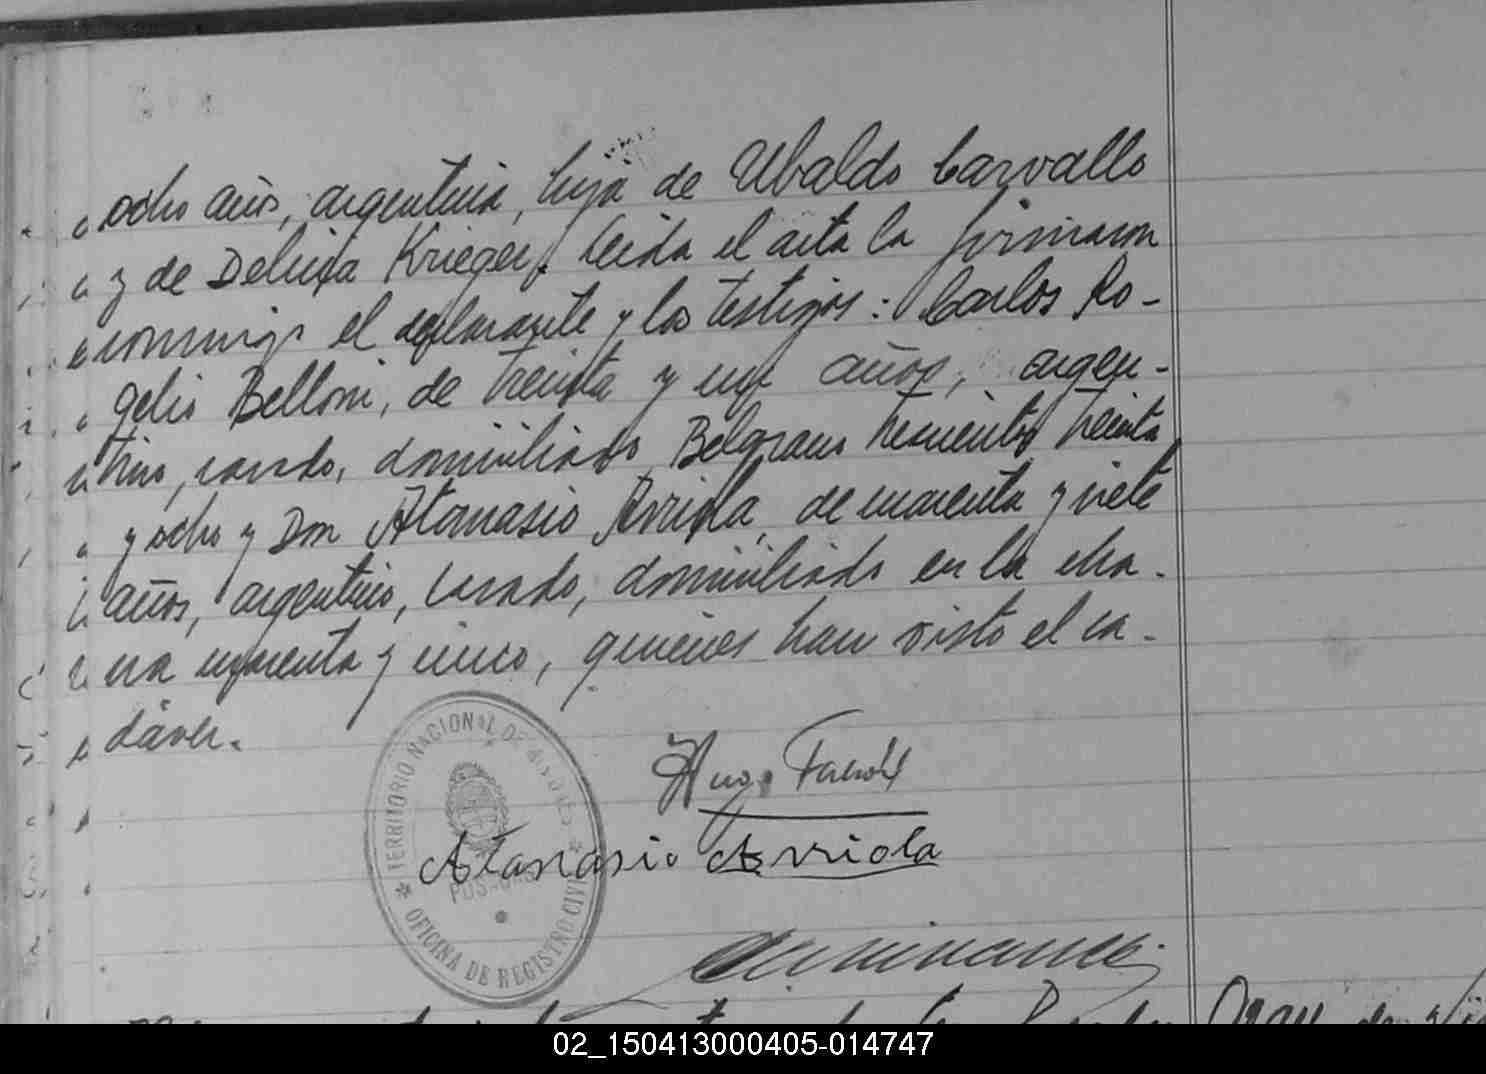 ocho años, argentina, hija de Ubaldo Carvallo
y de Delicia Krieger. Leida el acta la firmaron
conmigo el declarante y los testigos: Carlos Ro-
gelio Belloni, de treinta y un años, argen-
tino, casado, domiciliado Belgrano trescientos treinta
y ocho y Don Atanasio Arriola, de cuarenta y siete
años, argentino, casado, domiciliado en la cha-
cra cuarenta y cinco, quienes han visto el ca-
dáver.
TERRITORIO NACIONAL DE MISIONES
POSADAS
OFICINA DE REGISTRO CIVIL
Hugo
Atanasio Arriola
02_150413000405-014747